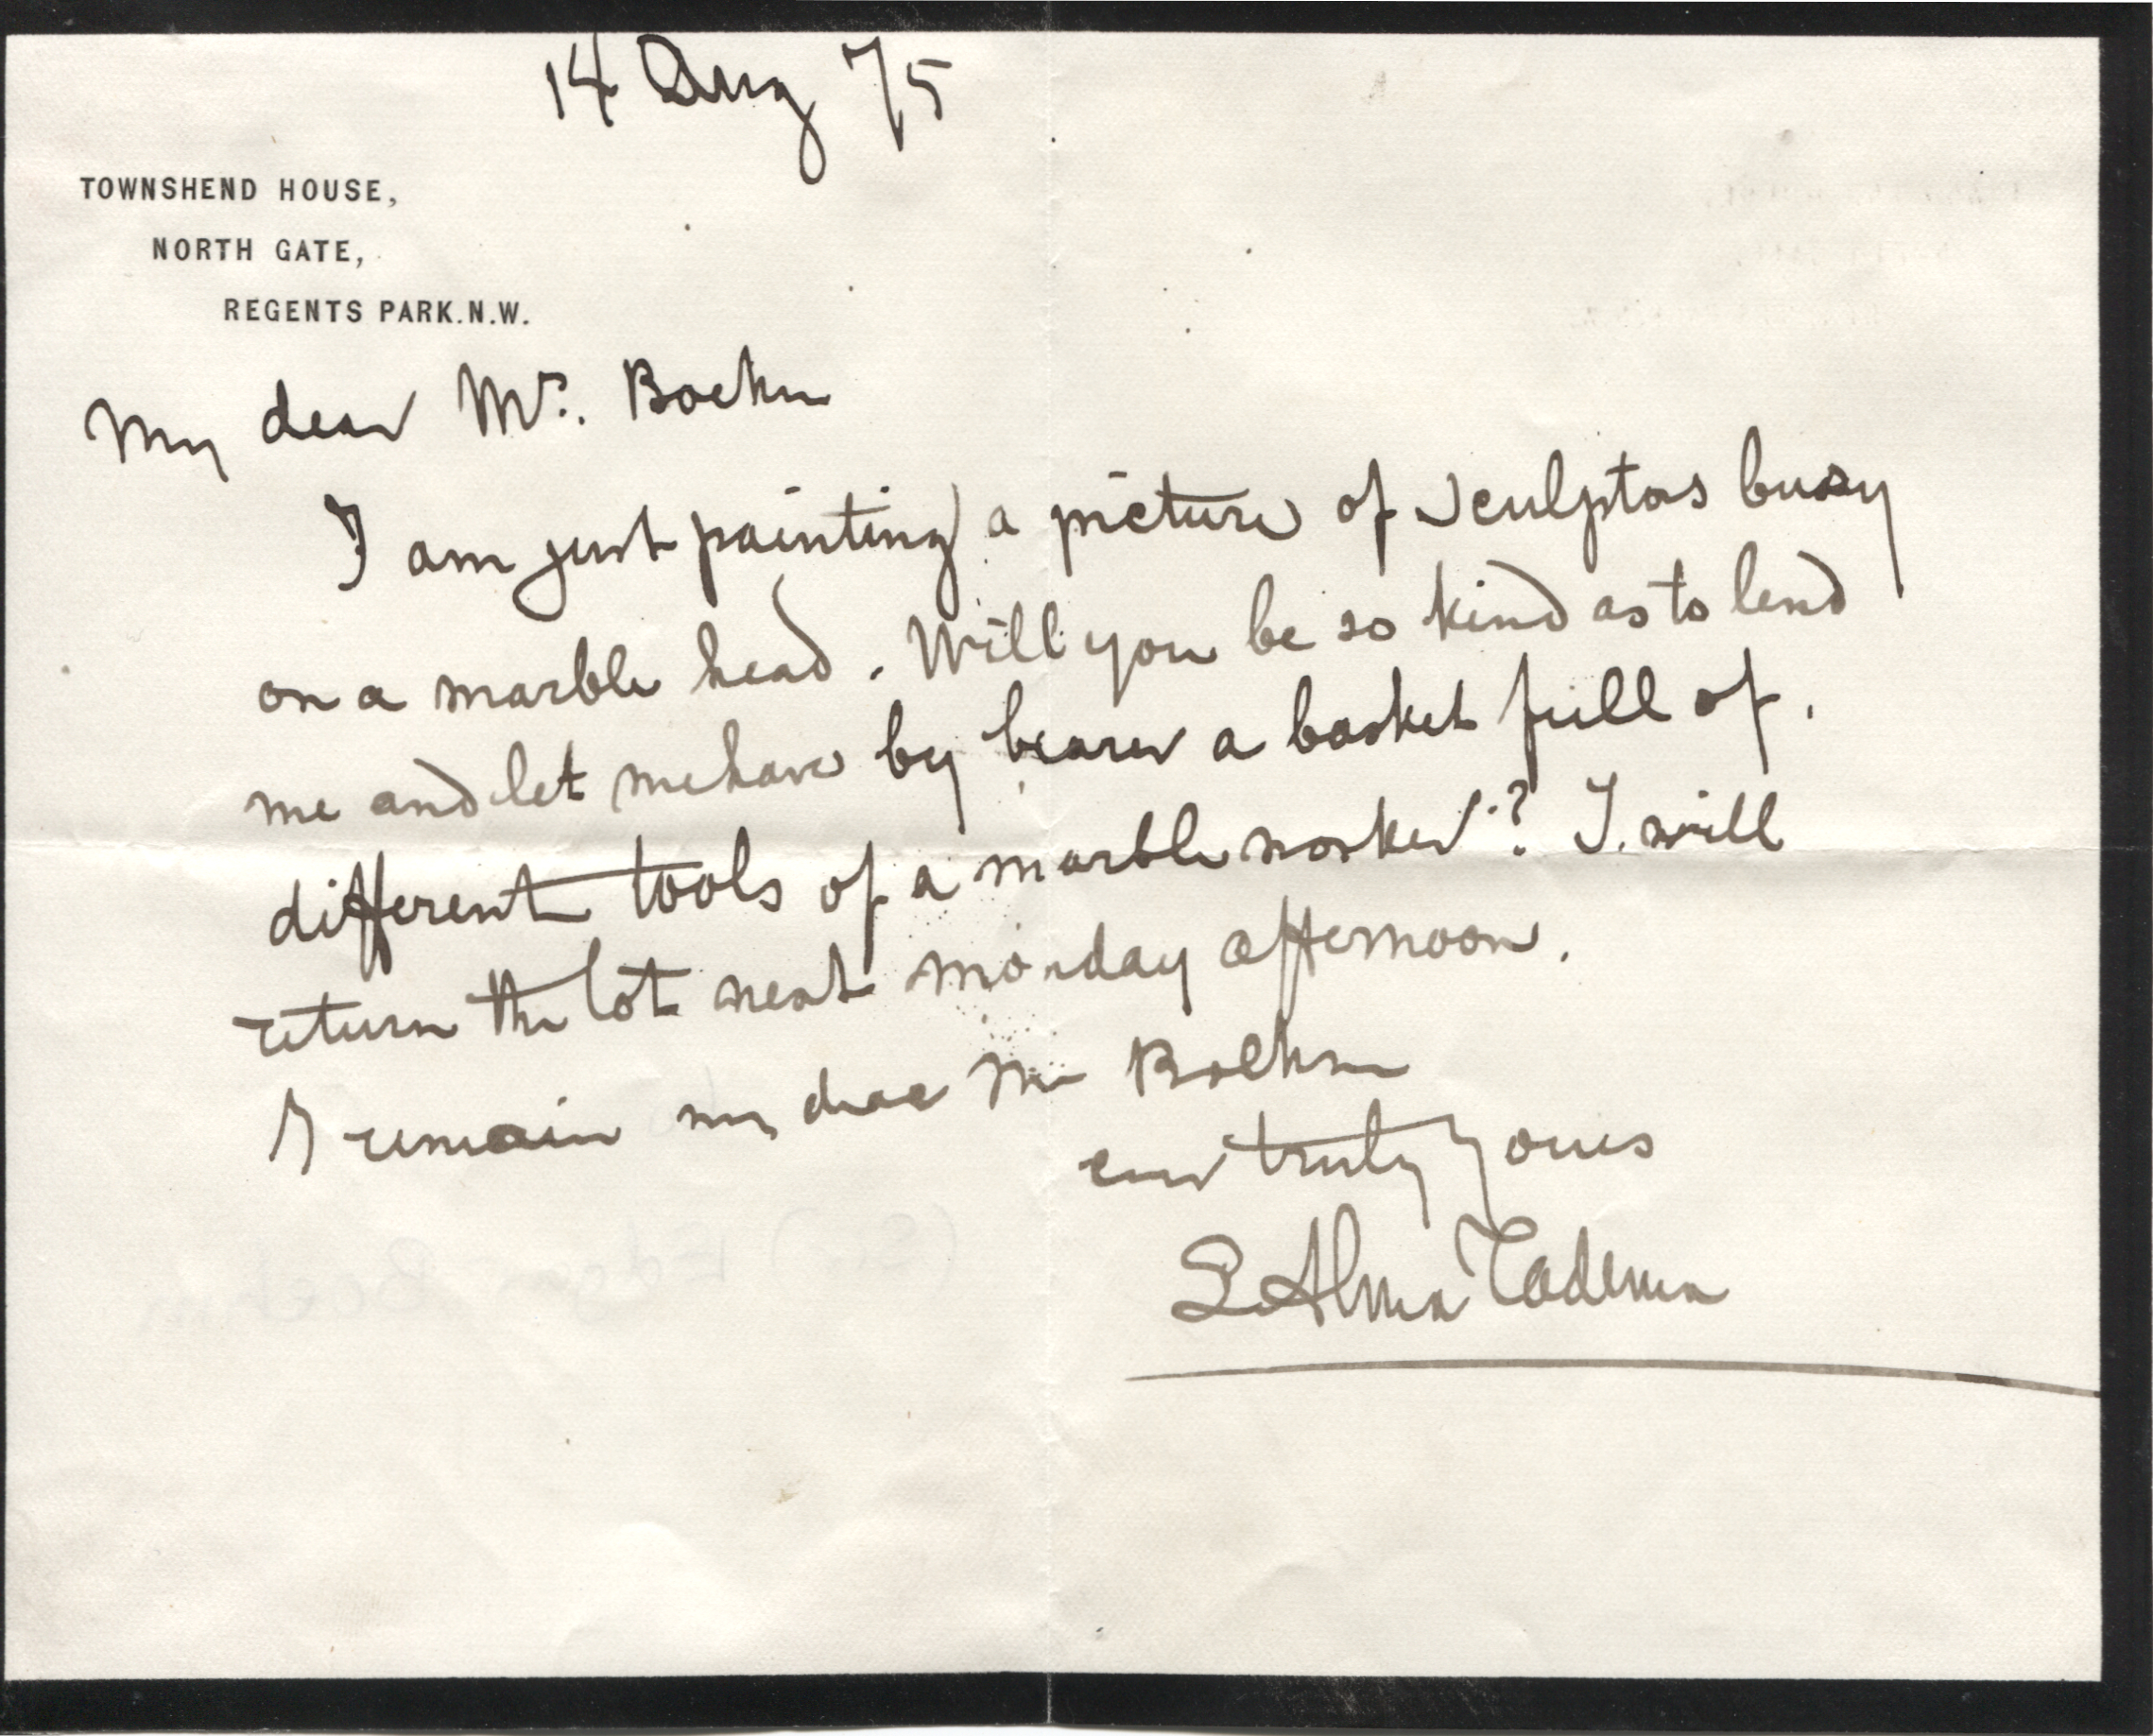 14 Aug 75
TOWNSHEND HOUSE,
NORTH GATE,
REGENTS PARK.N.W.
My dear Mr. Boehm
I am just painting a picture of sculptors busy
on a marble head. Will you be so kind as to lend
me and let me have by bearer a basket full of.
different tools of a marble worker? I will
return the lot next monday afternoon.
I remain my dear Mr Boehm
ever truly yours
L Alma Tadema
(Sir) Edgar Boehm